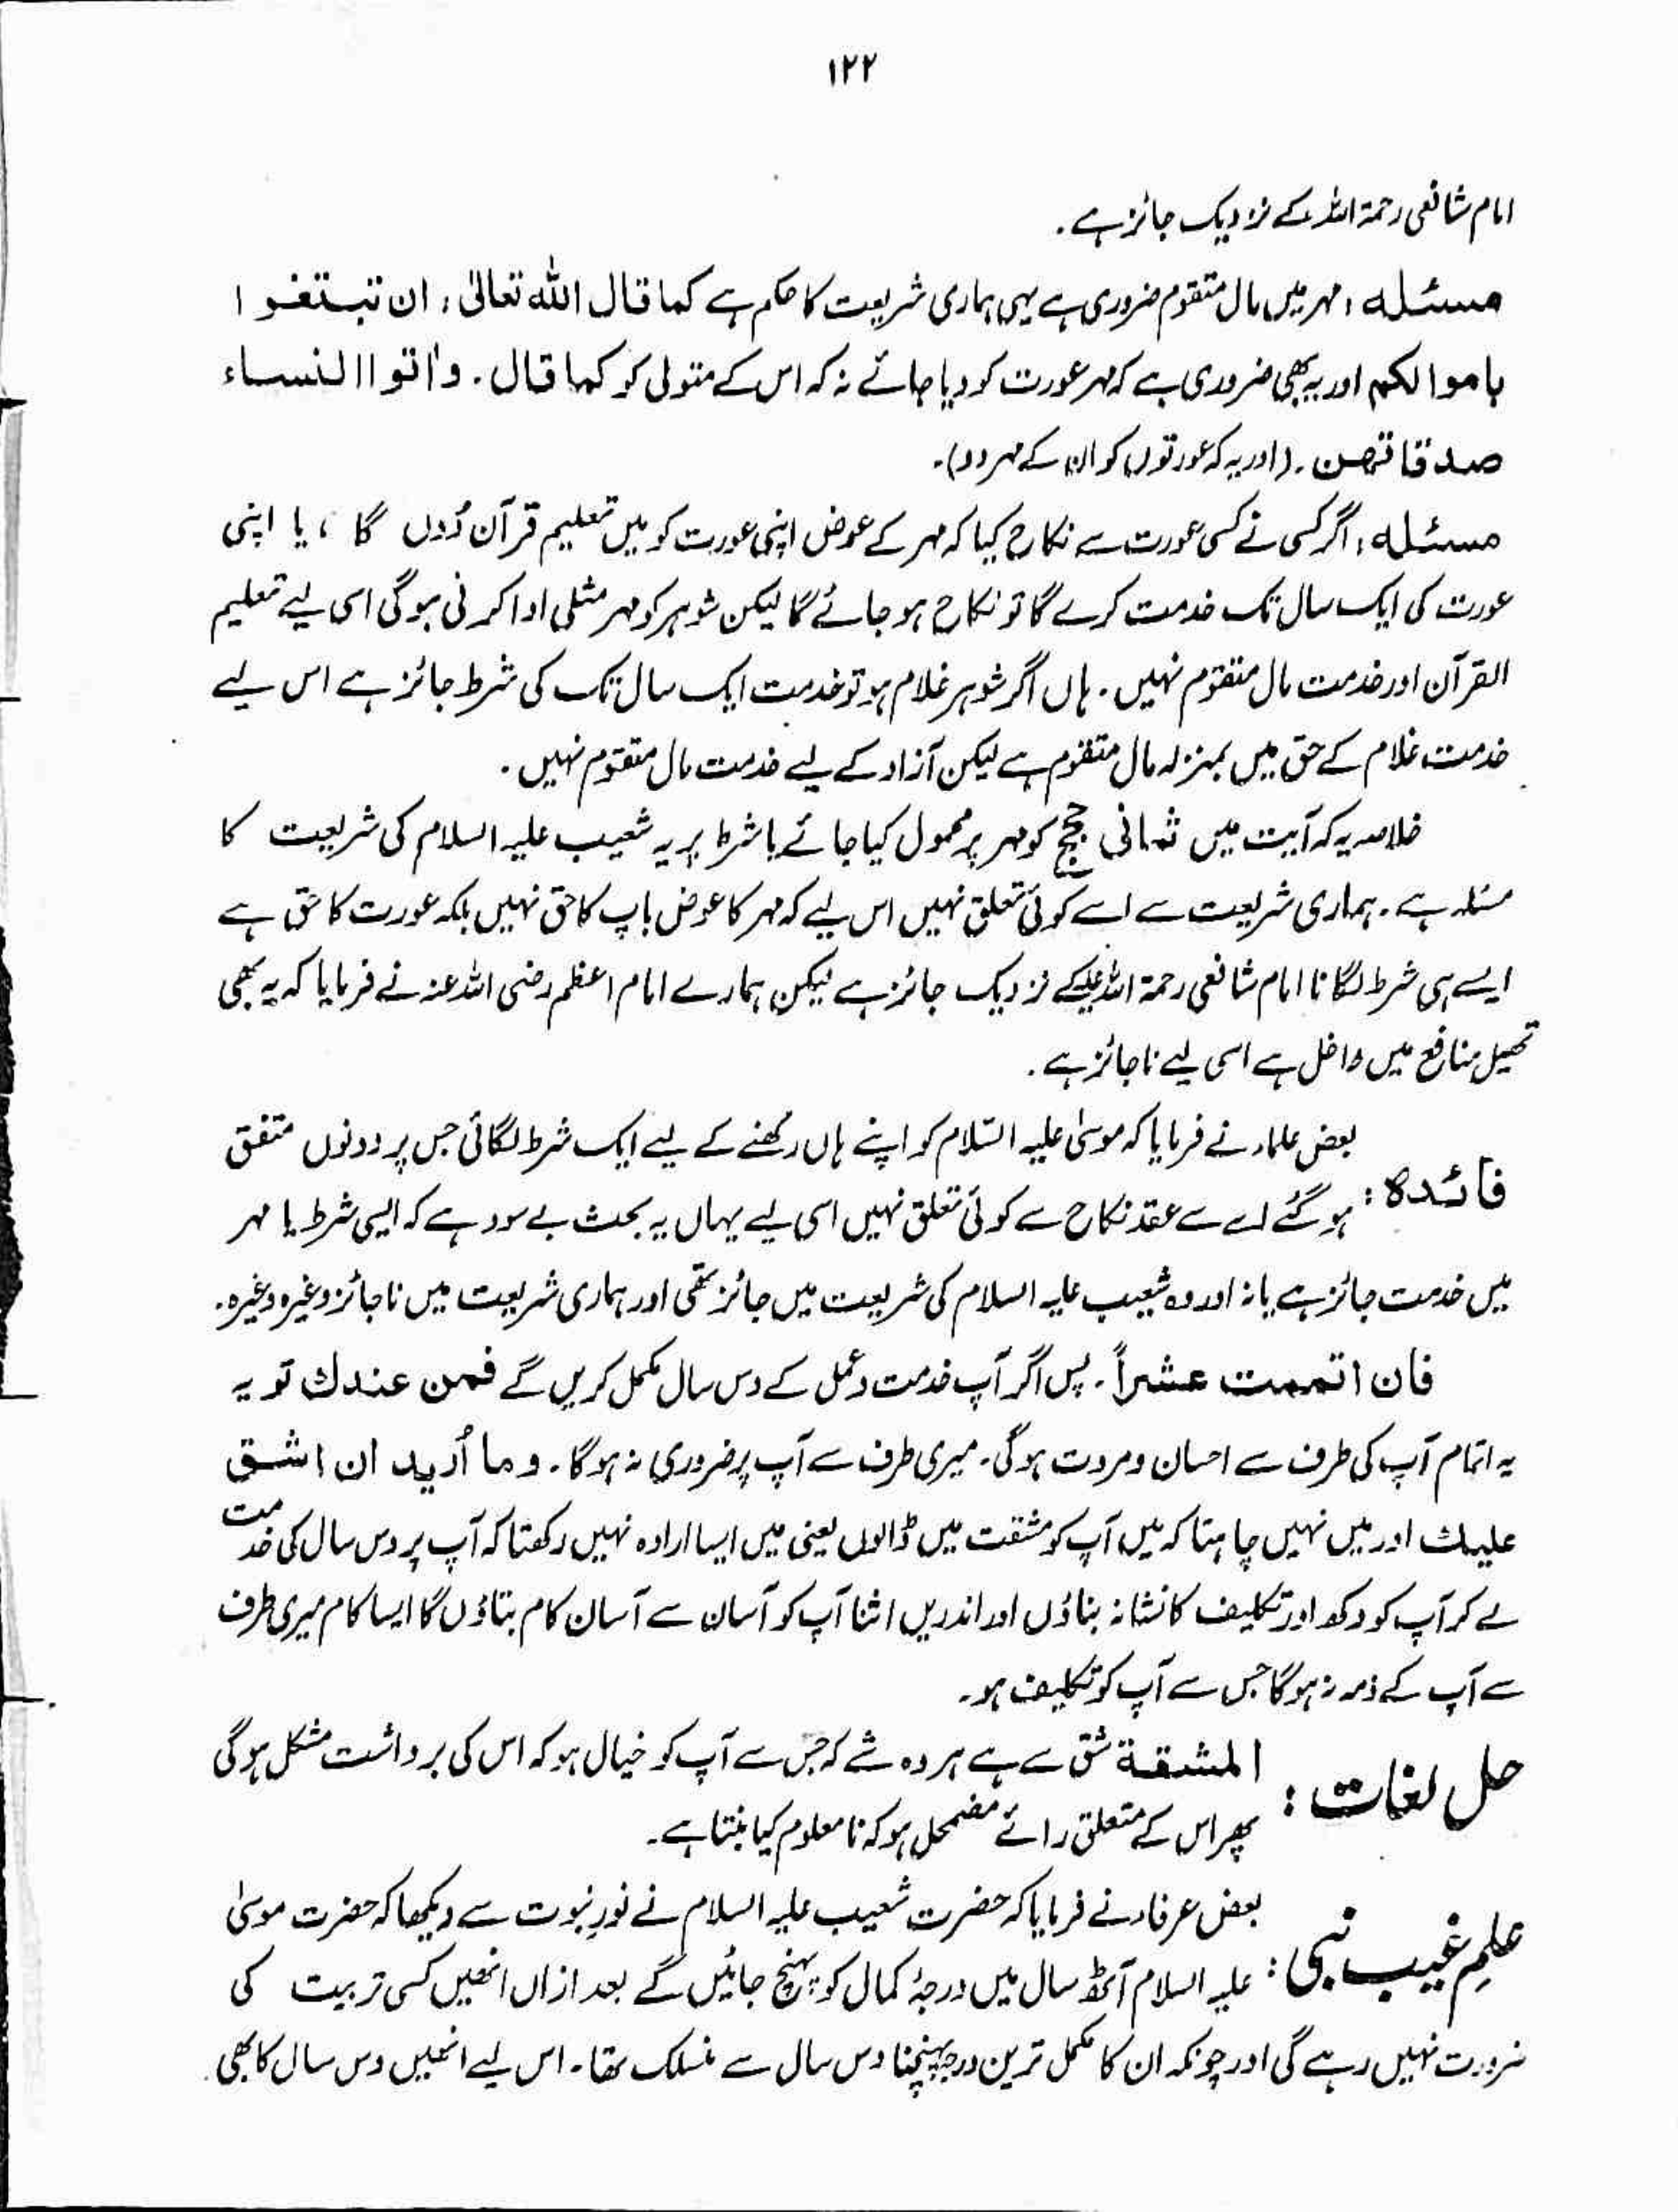 ۱۲۲
امام شافعی رحمۃ اللہ کے نزدیک جائز ہے ۔
مسئلہ : مہر میں مال متقوم ضروری ہے یہی ہماری شریعت کا حکم ہے کما قال اللہ تعالیٰ : ان تبتغوا
باموالکم اور یہ بھی ضروری ہے کہ مہر عورت کو دیا جائے نہ کہ اس کے متولی کو کما قال ۔ واٰتوا النساء
صدقاتهن ۔ (اور یہ کہ عورتوں کو ان کے مہر دو) ۔
مسئلہ : اگر کسی نے کسی عورت سے نکاح کیا کہ مہر کے عوض اپنی عورت کو میں تعلیم قرآن دُوں گا ، یا اپنی
عورت کی ایک سال تک خدمت کرے گا تو نکاح ہو جائے گا لیکن شوہر کو مہر مثلی ادا کرنی ہوگی اسی لیے تعلیم
القرآن اور خدمت مال متقوم نہیں ۔ ہاں اگر شوہر غلام ہو تو خدمت ایک سال تک کی شرط جائز ہے اس لیے
خدمت غلام کے حق میں بمنزلہ مال متقوم ہے لیکن آزاد کے لیے خدمت مال متقوم نہیں ۔
خلاصہ یہ کہ آیت میں ثمانی حجج کو مہر پر محمول کیا جائے یا شرط پر یہ شعیب علیہ السلام کی شریعت کا
مسئلہ ہے ۔ ہماری شریعت سے اسے کوئی تعلق نہیں اس لیے کہ مہر کا عوض باپ کا حق نہیں بلکہ عورت کا حق ہے
ایسے ہی شرط لگانا امام شافعی رحمۃ اللہ علیہ کے نزدیک جائز ہے لیکن ہمارے امام اعظم رضی اللہ عنہ نے فرمایا کہ یہ بھی
تحصیل منافع میں داخل ہے اسی لیے ناجائز ہے ۔
بعض علماء نے فرمایا کہ موسیٰ علیہ السّلام کو اپنے ہاں رکھنے کے لیے ایک شرط لگائی جس پر دونوں متفق
فائدہ : ہو گئے اسے سے عقد نکاح سے کوئی تعلق نہیں اسی لیے یہاں یہ بحث بے سود ہے کہ ایسی شرط یا مہر
میں خدمت جائز ہے یا نہ اور وہ شعیب علیہ السلام کی شریعت میں جائز تھی اور ہماری شریعت میں ناجائز وغیرہ وغیرہ ۔
فان اتممت عشراً ۔ پس اگر آپ خدمت و عمل کے دس سال مکمل کریں گے فمن عندك تو یہ
یہ اتمام آپ کی طرف سے احسان و مروت ہوگی ۔ میری طرف سے آپ پر ضروری نہ ہوگا ۔ وما اُرید ان اشق
علیك اور میں نہیں چاہتا کہ میں آپ کو مشقت میں ڈالوں یعنی میں ایسا ارادہ نہیں رکھتا کہ آپ پر دس سال کی خدمت
لے کر آپ کو دکھ اور تکلیف کا نشانہ بناؤں اور اندریں اثنا آپ کو آسان سے آسان کام بتاؤں گا ایسا کام میری طرف
سے آپ کے ذمہ نہ ہوگا جس سے آپ کو تکلیف ہو ۔
المشقۃ شق سے ہے ہر وہ شے کہ جس سے آپ کو خیال ہو کہ اس کی برداشت مشکل ہوگی
حل لغات : پھر اس کے متعلق رائے مضمحل ہو کہ نامعلوم کیا بنتا ہے ۔
بعض عرفاء نے فرمایا کہ حضرت شعیب علیہ السلام نے نورِ نبوت سے دیکھا کہ حضرت موسیٰ
علمِ غیب نبی : علیہ السلام آٹھ سال میں درجۂ کمال کو پہنچ جائیں گے بعد ازاں انھیں کسی تربیت کی
ضرورت نہیں رہے گی اور چونکہ ان کا مکمل ترین درجہ پہنچنا دس سال سے منسلک تھا ۔ اس لیے انھیں دس سال کا بھی